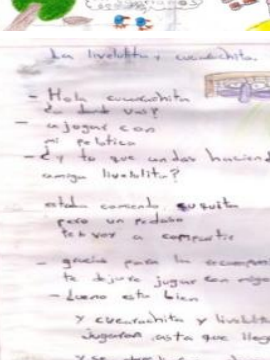 La livelulita y cucarachita.
- Hola cucarachita
¿a donde vas?
- a jugar con
mi pelotica
- ¿y tu que andas haciend
amiga livelulita?
estaba comiendo, 
pero un pedaso
te voy a compartir
- gracias para la
te dejare jugar con migo
- bueno esta bien
y cucarachita y livelulit
jugaron asta que lleg
y se